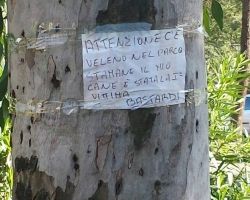 ATTENZIONE C'È
VELENO NEL PARCO
STAMANE IL MIO
CANE È STATA LA I°
VITTIMA
BASTARDI